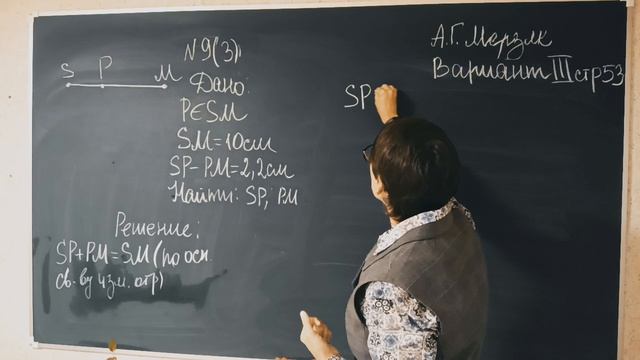 А.Г. Мерзляк
Вариант III стр 53
S P M
N9(3)
Дано:
P∈SM
SM=10см
SP-PM=2,2см
Найти: SP, PM
Решение:
SP+PM=SM (по осн.
св-ву изм. отр)
SP